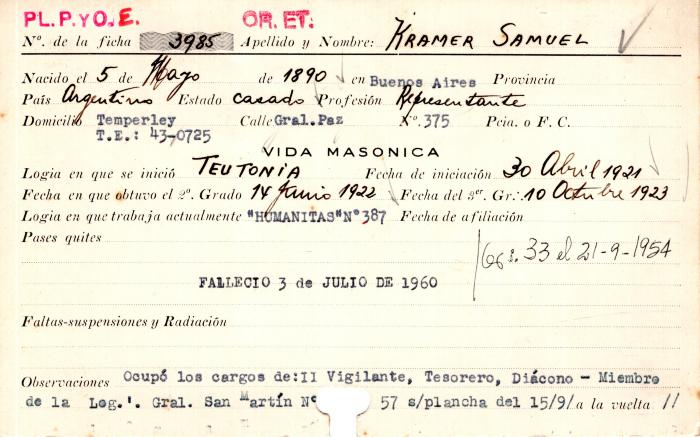 PL. P. Y O. E. OR. ET:
Nº. de la ficha 3985 Apellido y Nombre: KRAMER SAMUEL
Nacido el 5 de Mayo de 1890 en Buenos Aires Provincia
País Argentino Estado casado Profesión Representante
Domicilio Temperley Calle Gral. Paz Nº. 375 Pcia. o F. C.
T.E.: 43-0725
VIDA MASONICA
Logia en que se inició TEUTONIA Fecha de iniciación 30 Abril 1921
Fecha en que obtuvo el 2º. Grado 14 Junio 1922 Fecha del 3er. Gr: 10 Octubre 1923
Logia en que trabaja actualmente "HUMANITAS" Nº 387 Fecha de afiliación
Pases quites
33 el 21-9-1954
FALLECIO 3 de JULIO DE 1960
Faltas-suspensiones y Radiación
Observaciones Ocupó los cargos de: II Vigilante, Tesorero, Diácono - Miembro
de la Log.'. Gral. San Martín Nº 57 s/plancha del 15/9/ a la vuelta //